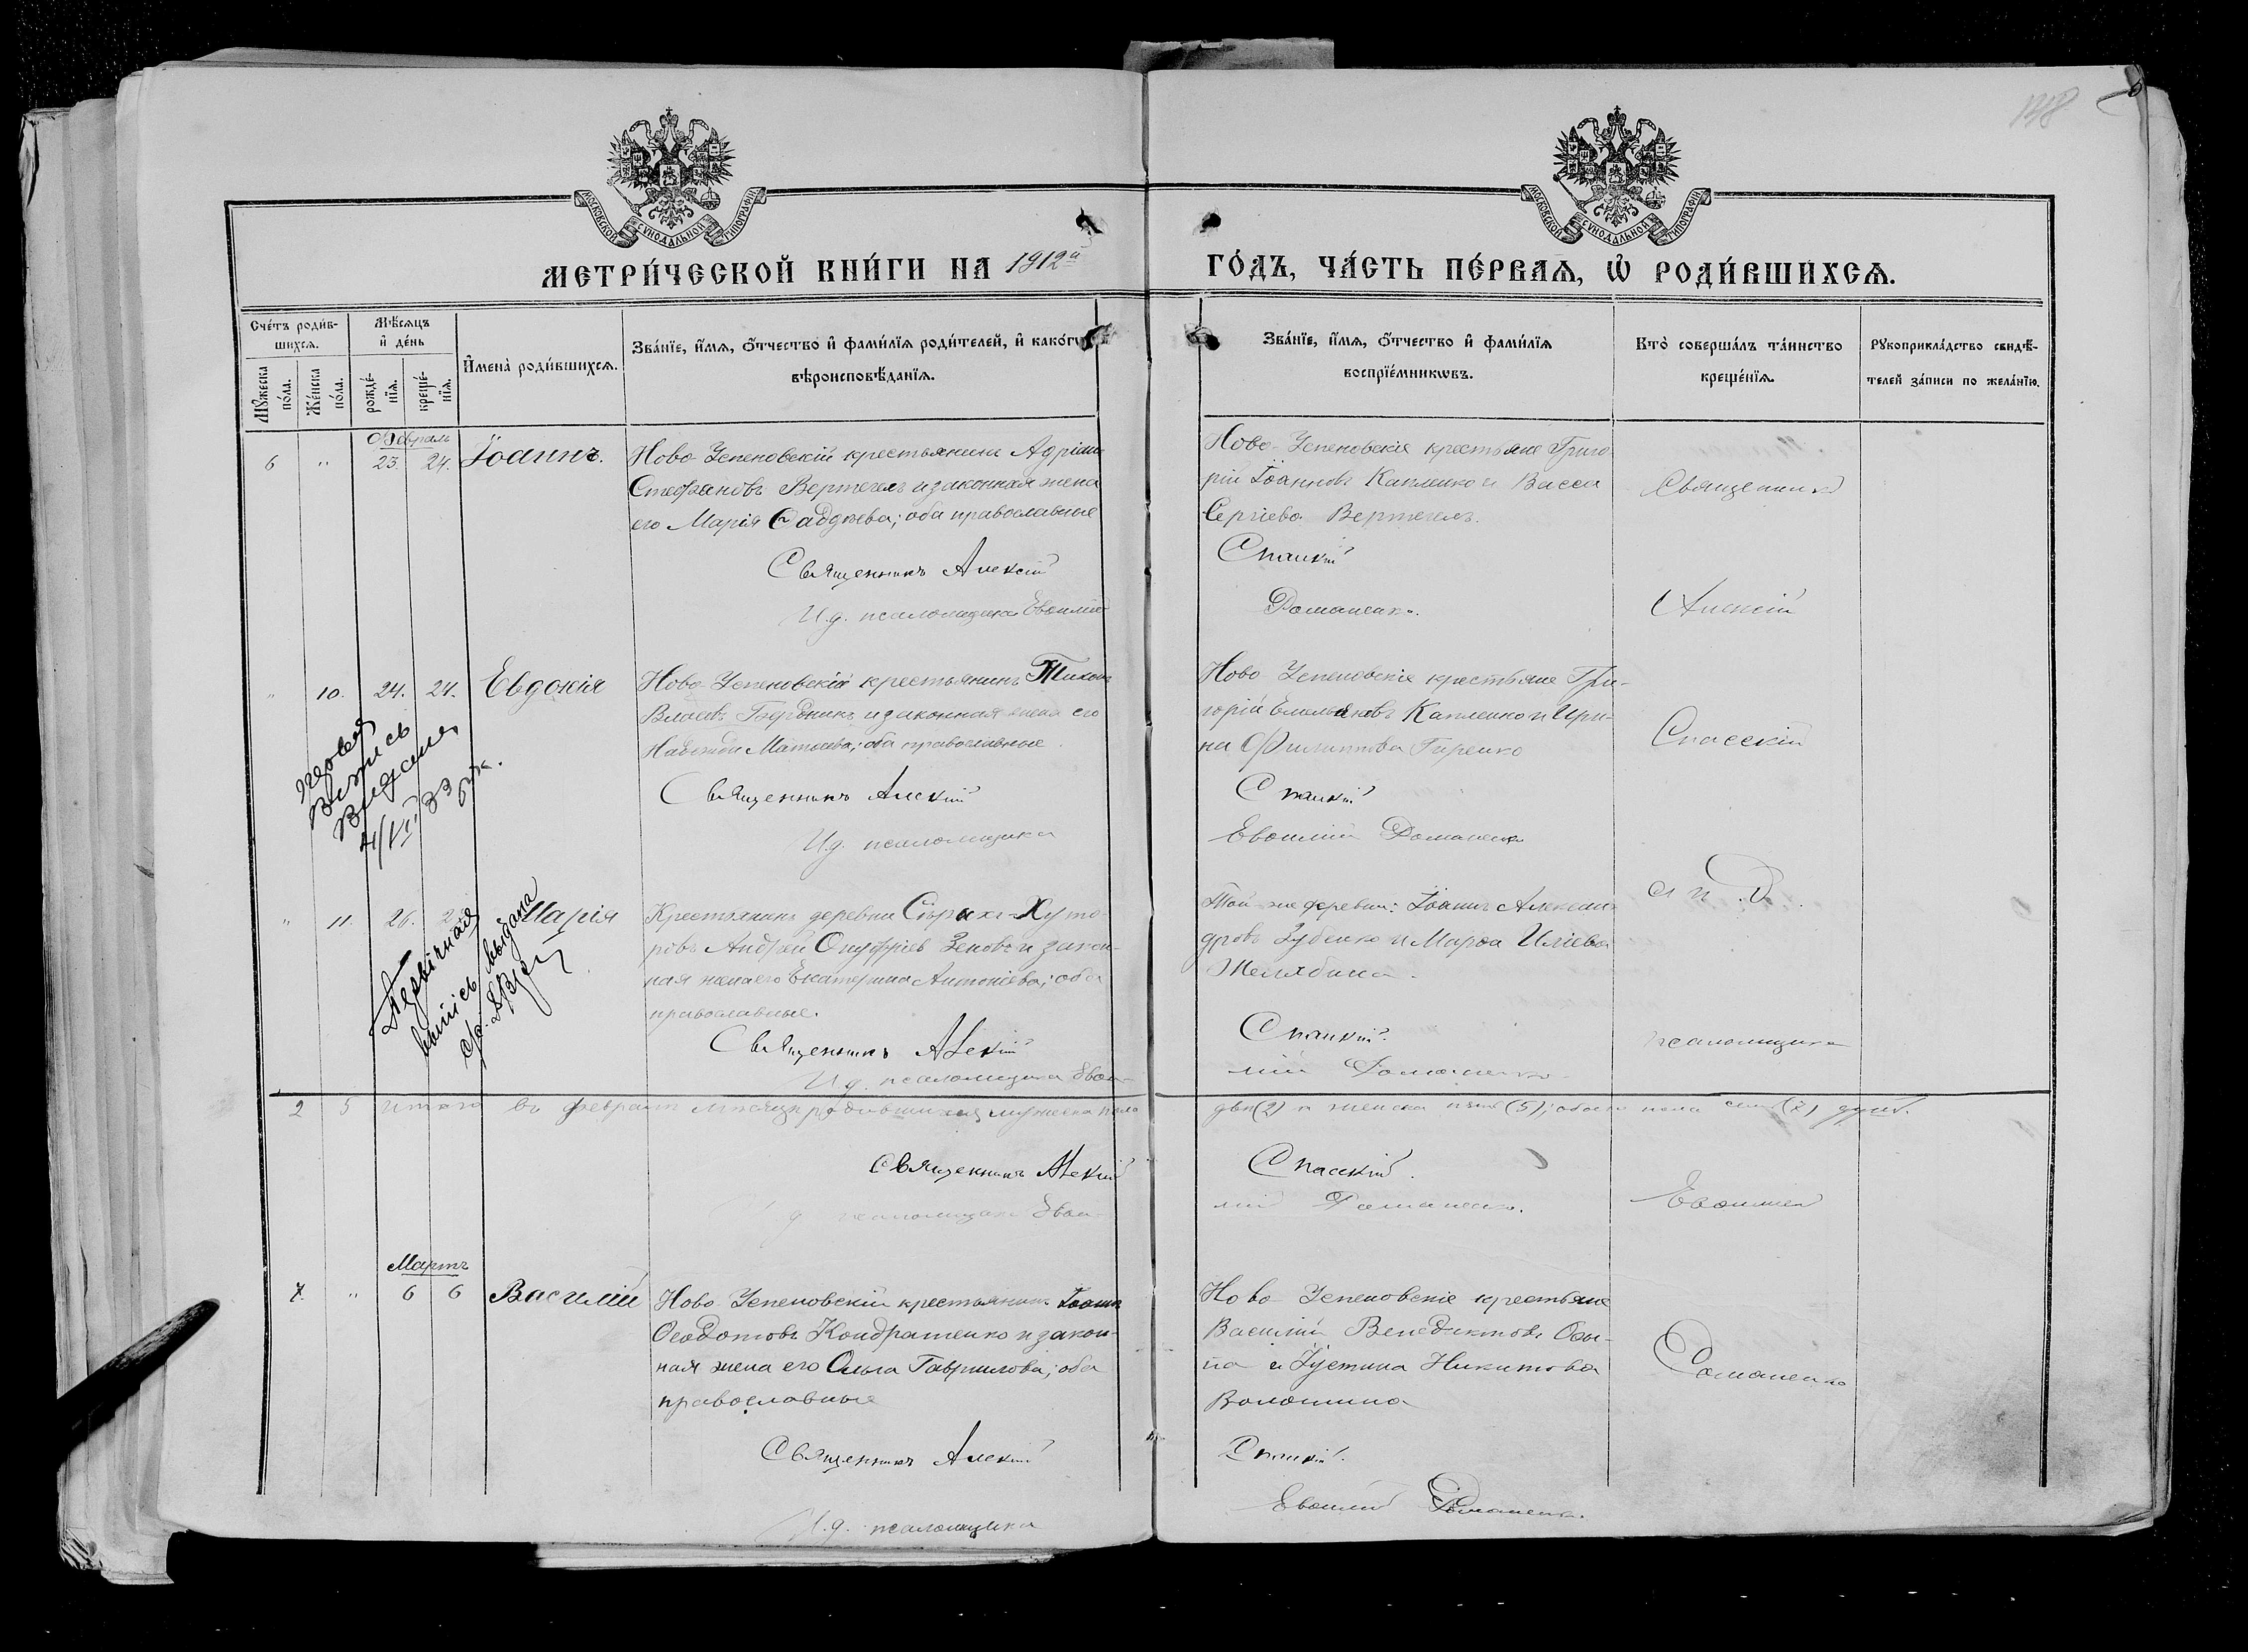 138
МОСКОВСКОЙ СѴНОДАЛЬНОЙ ТИПОГРАФІИ
МОСКОВСКОЙ СѴНОДАЛЬНОЙ ТИПОГРАФІИ
МЕТРИ́ЧЕСКОЙ КНИ́ГИ НА 1912й
ГО́ДЪ, ЧА́СТЬ ПЕ́РВАѦ, Ѡ҆ РОДИ́ВШИХСѦ.
Сче́тъ роди́вшихсѧ.
Мꙋ́жеска по́ла.
Же́нска по́ла.
Мѣ́сѧцъ и҆ де́нь
рожде́нїѧ.
креще́нїѧ.
И҆мена̀ роди́вшихсѧ.
Зва́нїе, и҆́мѧ, ѻ҆́тчество и҆ фами́лїѧ роди́телей, и҆ како́гѡ
вѣроисповѣ́данїѧ.
Зва́нїе, и҆́мѧ, ѻ҆́тчество и҆ фами́лїѧ
воспрїе́мникѡвъ.
Кто̀ соверша́лъ та́инство
креще́нїѧ.
Рꙋкоприкла́дство свидѣ́-
телей за́писи по жела́нїю.
Февраль
6 " 23. 24. Іоаннъ.
Ново-Успеновскій крестьянинъ
Стефановъ Вертегелъ и законная жена
его Марія Фаддѣева; оба православные
Священникъ Алексій
И.д. псаломщика Евѳимій
Ново-Успеновскіе крестьяне Григо-
рій Іоанновъ Капленко и Васса
Сергіева Вертегелъ.
Спасскій
Романенко.
Священникъ
Алексій
" 10. 24. 24. Евдокія
Ново-Успеновскій крестьянинъ Тихонъ
и законная жена его
Надежда оба православные.
Священникъ Алексій
И.д. псаломщика
Ново-Успеновскіе крестьяне Гри-
горій Емельяновъ Капленко и Ири-
на Филиппова Гиренко
Спасскій
Евѳимій Романенко
Спасскій
и п. д.
выпись
4/VII 33
" 11. 26. Марія
Крестьянинъ деревни Хуто-
ровъ Андрей Онуфріевъ Зеновъ и закон-
ная жена его Екатерина Антоніева; оба
православные.
Священникъ Алексій
И.д. псаломщика Евѳи-
Той же деревни: Іоаннъ Алексан-
дровъ Зубенко и Марѳа Иліева
Спасскій
мій Романенко
псаломщика
выпись выдана
2 5 Итого въ февралѣ мѣсяцѣ родившихся мужска пола
два (2) и женска пять (5); обоего пола семь (7) душъ.
Священникъ Алексій
псаломщика Евѳи-
Спасскій.
мій Романенко.
Евѳимій
Мартъ
7. " 6 6 Василій
Ново-Успеновскій крестьянинъ Іоаннъ
Ѳеодотовъ Кондратенко и закон-
ная жена его Ольга Гавриилова; оба
православные
Священникъ Алексій
И.д. псаломщика
Ново-Успеновскіе крестьяне
Василій Венедиктовъ
и Іустина Никитова
Волошина
Спасскій.
Евѳимій Романенко.
Романенко